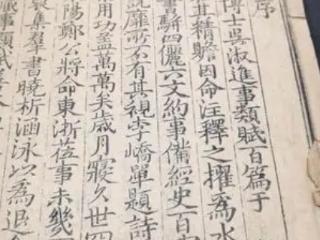 序
博士吳淑進事類賦百篇于
其精贍因命注釋之擢為水
書駢四儷六文約事備經史百
靡所不有其視李嶠單題詩
用功蓋萬萬矣歲月寖久世
陽鄭公將命東浙莅事未幾
集羣書曉析涵泳以為退
事類賦